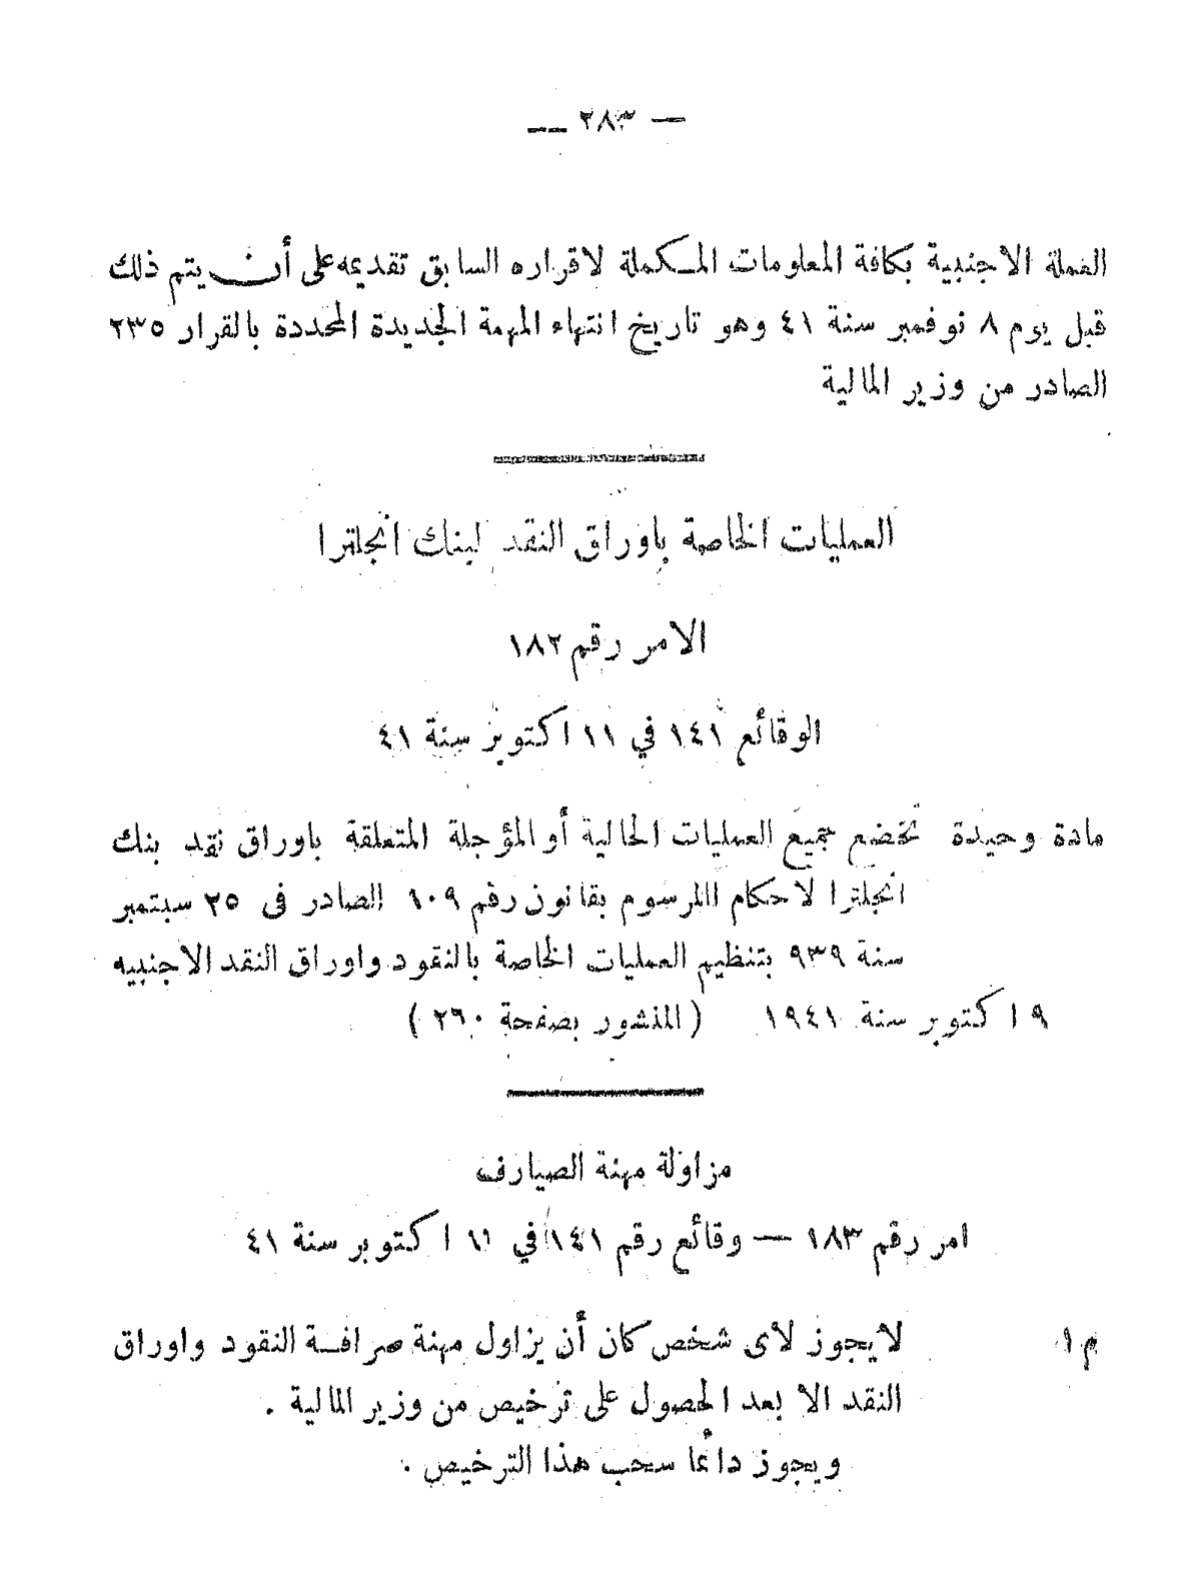 — ٢٨٣ —
العملة الاجنبية بكافة المعلومات المكملة لاقراره السابق تقديمه على أن يتم ذلك
قبل يوم ٨ نوفمبر سنة ٤١ وهو تاريخ انتهاء المهمة الجديدة المحددة بالقرار ٢٣٥
الصادر من وزير المالية
العمليات الخاصة باوراق النقد لبنك انجلترا
الامر رقم ١٨٢
الوقائع ١٤١ في ١١ اكتوبر سنة ٤١
مادة وحيدة تخضع جميع العمليات الحالية أو المؤجلة المتعلقة باوراق نقد بنك
انجلترا لاحكام االمرسوم بقانون رقم ١٠٩ الصادر فى ٢٥ سبتمبر
سنة ٩٣٩ بتنظيم العمليات الخاصة بالنقود واوراق النقد الاجنبيه
٩ اكتوبر سنة ١٩٤١ (المنشور بصفحة ٢٦٠)
مزاولة مهنة الصيارف
امر رقم ١٨٣ — وقائع رقم ١٤١ في ١١ اكتوبر سنة ٤١
م ١ لايجوز لاى شخص كان أن يزاول مهنة صرافة النقود واوراق
النقد الا بعد الحصول على ترخيص من وزير المالية .
ويجوز دائما سحب هذا الترخيص .